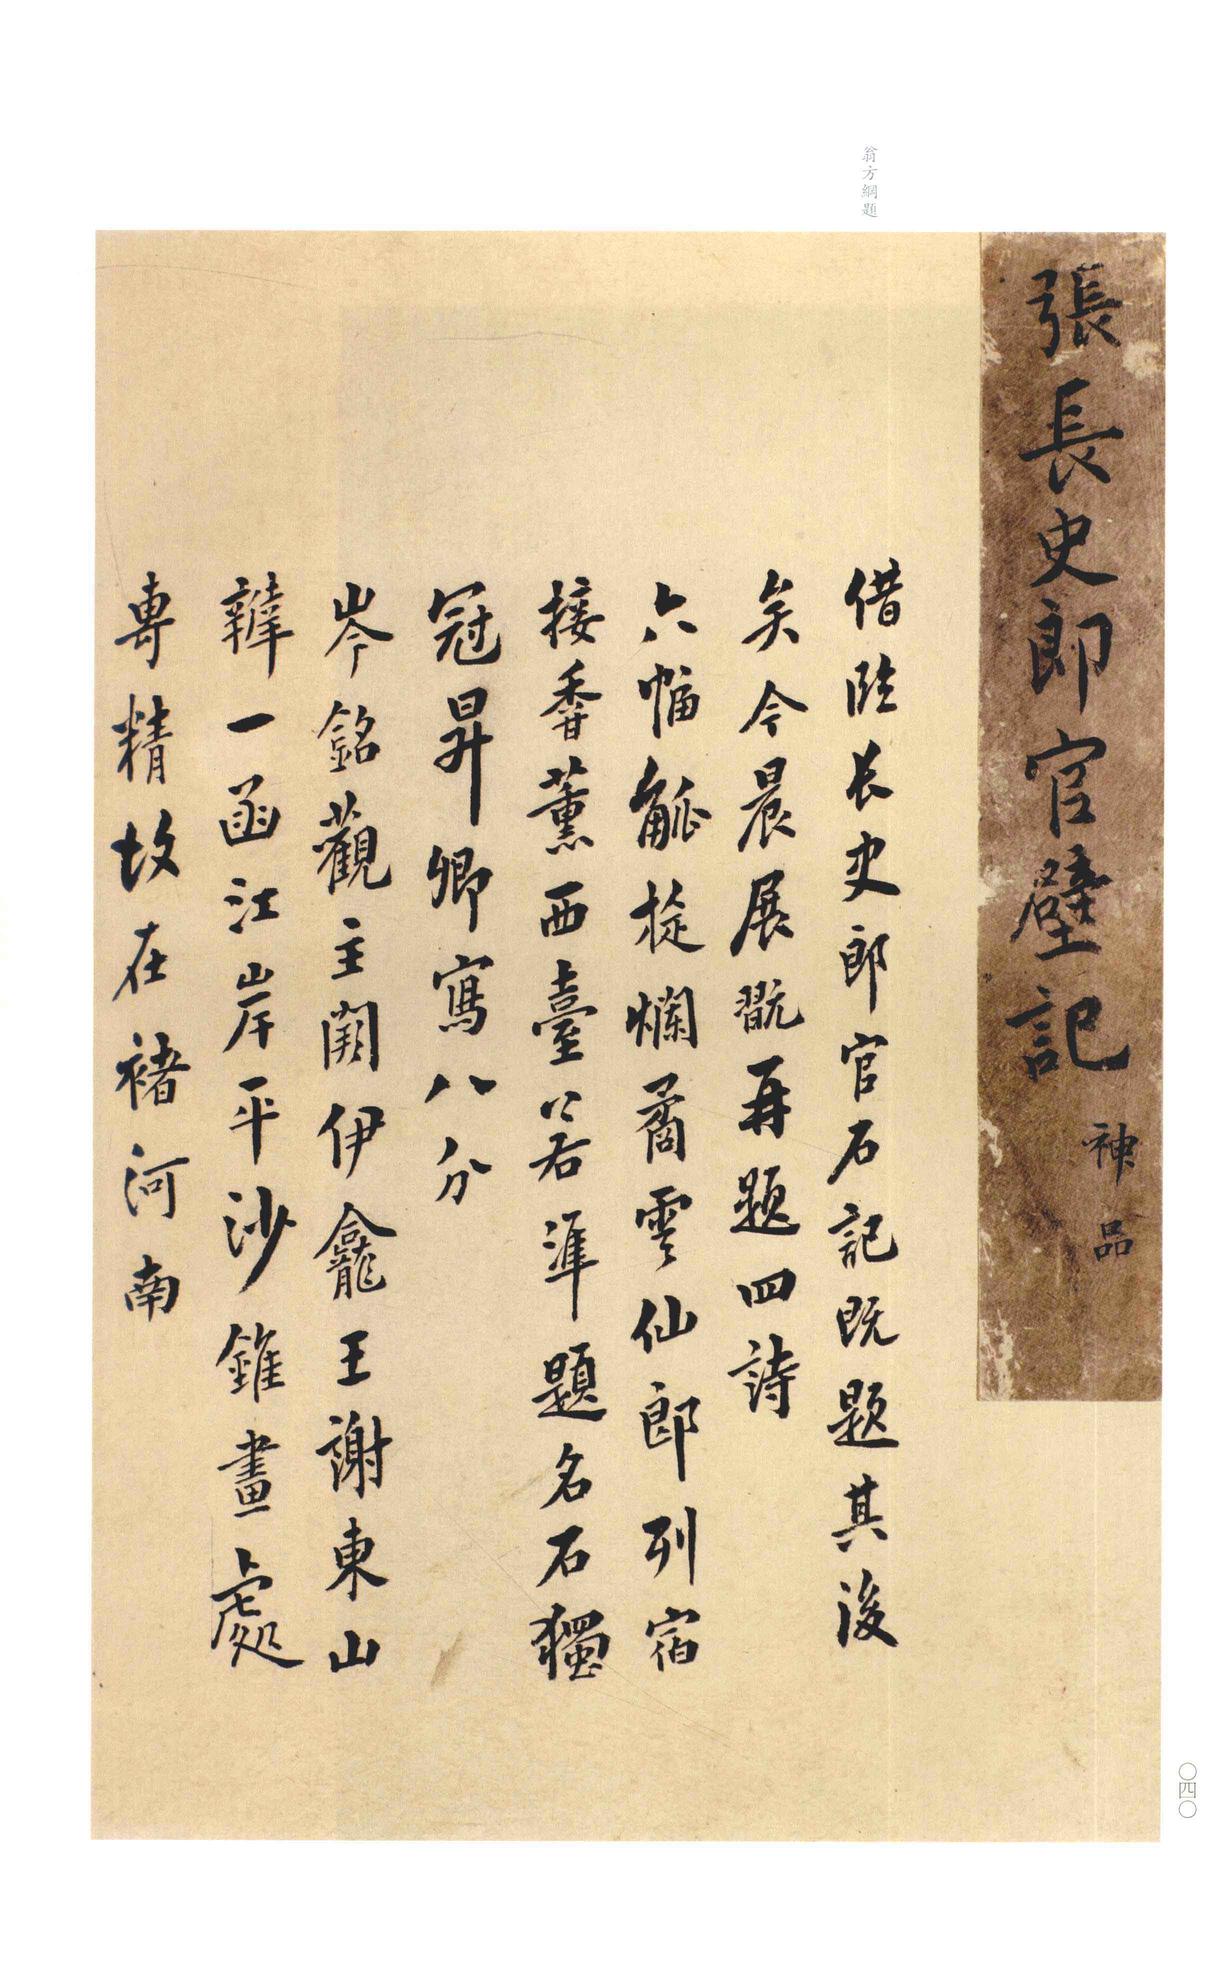 翁方綱題
張長史郎官壁記
神品
借臨長史郎官石記既題其後
矣今晨展翫再題四詩
六幅觚棱爛矞雲仙郎列宿
接香薰西臺比若準題名石獨
冠昇卿寫八分
岑銘觀主闕伊龕王謝東山
辨一函江岸平沙錐畫處
專精故在褚河南
〇四〇